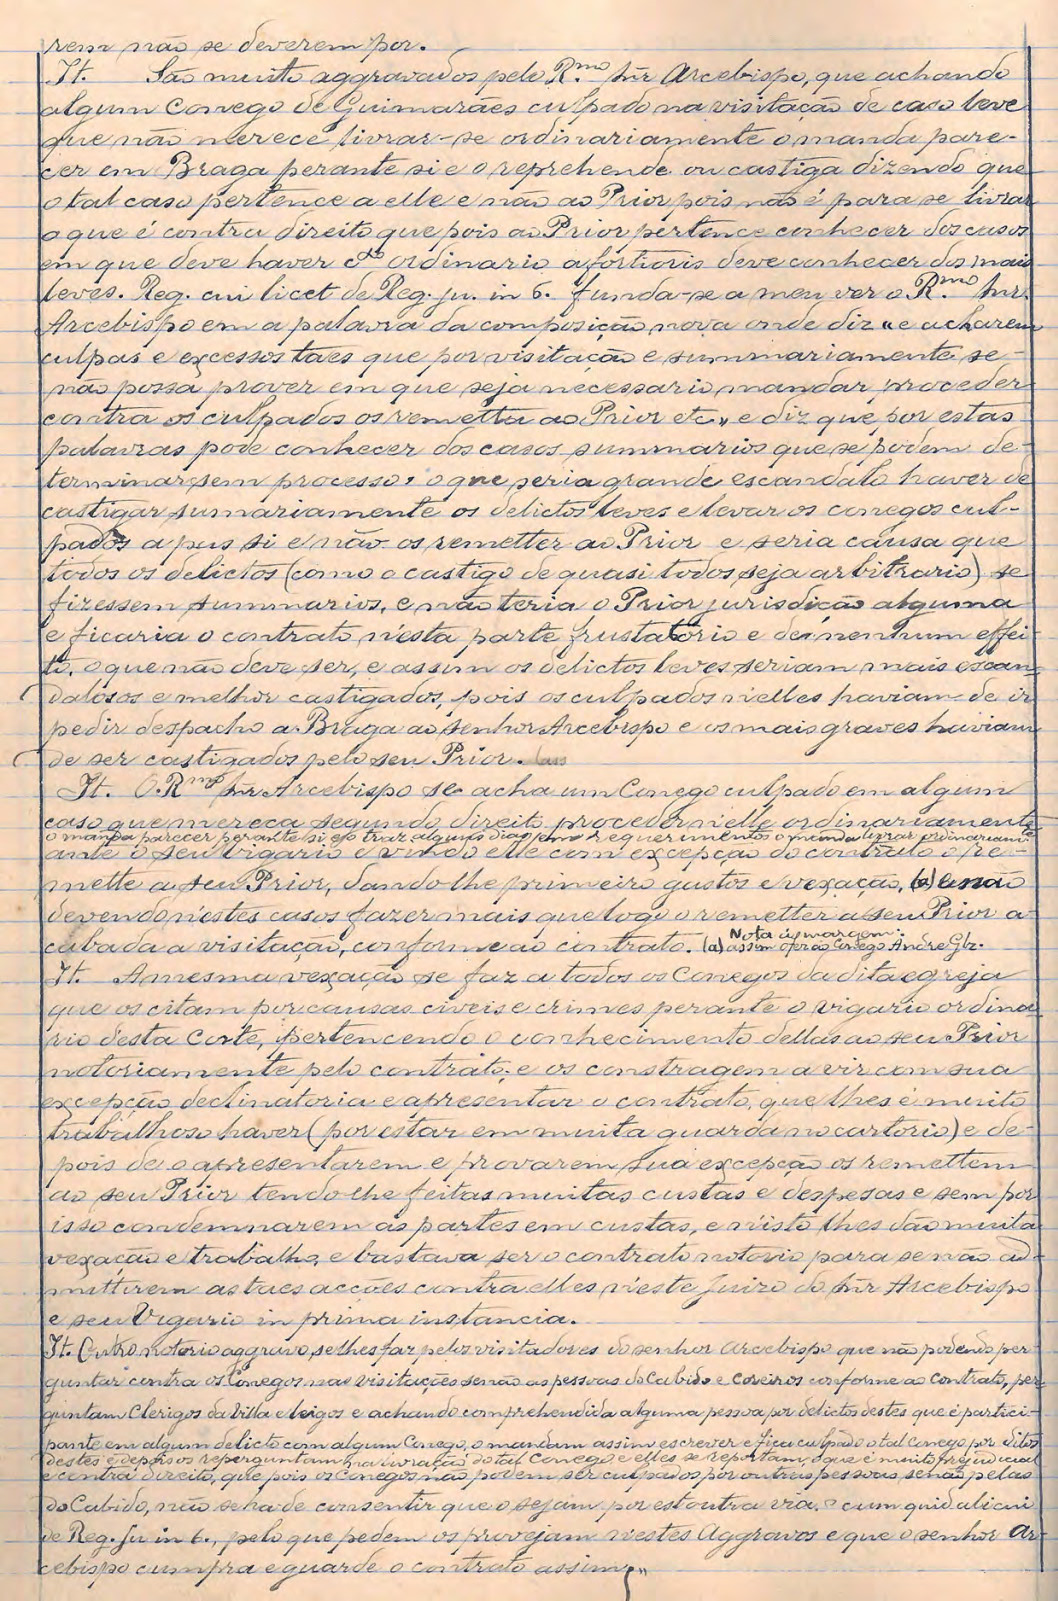 rem não se deverem por.
It. São muito aggravados pelo R.mo Snr Arcebispo, que achando
algum Conego de Guimarães culpado na visitação de caso leve
que não merece livrar-se ordinariamente o manda pare-
cer em Braga perante si e o reprehende ou castiga dizendo que
o tal caso pertence a elle e não ao Prior pois não é para se livrar
o que é contra direito que pois ao Prior pertence conhecer dos casos
em que deve haver ordinario a fortioris deve conhecer dos mais
leves. Reg. cui licet de Reg. ju. in 6. funda-se a meu ver o R.mo Snr.
Arcebispo em a palavra da composição nova onde diz "e acharem
culpas e excessos taes que por visitação e summariamente se
não possa prover em que seja necessario mandar proceder
contra os culpados os remetta ao Prior etc" e diz que por estas
palavras pode conhecer dos casos summarios que se podem de-
terminar sem processo: o que seria grande escandalo haver de
castigar sumariamente os delictos leves e levar os conegos cul-
pados a pus si e não os remetter ao Prior e seria causa que
todos os delictos (como o castigo de quasi todos seja arbitrario) se
fizessem summarios, e não teria o Prior jurisdição alguma
e ficaria o contrato n'esta parte frustatorio e de nenhum effei-
to, o que não deve ser, e assim os delictos leves seriam mais escan-
dalosos e melhor castigados, pois os culpados n'elles haviam de ir
pedir despacho a Braga ao senhor Arcebispo e os mais graves haviam
de ser castigados pelo seu Prior.
It. O R.mo Snr Arcebispo se acha um Conego culpado em algum
caso que mereça segundo direito proceder n'elle ordinariamente
o manda parecer perante si e o traz alguns dias em requerimentos o manda livrar ordinariamte
ante o seu Vigario e vindo elle com excepção do contrato o re-
mette a seu Prior, dando-lhe primeiro gastos e vexação, (a) e não
devendo n'estes casos fazer mais que logo o remetter a seu Prior a-
cabada a visitação, conforme ao contrato. (a) Nota á margem:
assim o fez ao Conego André Glz.
It. A mesma vexação se faz a todos os Conegos da dita egreja
que os citam por causas civeis e crimes perante o vigario ordina-
rio desta Corte, pertencendo o conhecimento dellas ao seu Prior
notoriamente pelo contrato; e os constragem a vir com sua
excepção declinatoria e apresentar o contrato, que lhes é muito
trabalhoso haver (por estar em muita guarda no cartorio) e de-
pois de o apresentarem e provarem sua excepção os remettem
ao seu Prior tendo-lhe feitas muitas custas e despesas e sem por
isso condemnarem ás partes em custas, e n'isto lhes dão muita
vexação e trabalho, e bastava ser o contrato notorio para se não ad-
mittirem as taes acções contra elles n'este Juizo do Snr Arcebispo
e seu Vigario in prima instancia.
It. Outro notorio aggravo se lhes faz pelos visitadores do senhor Arcebispo que não podendo per-
guntar contra os Conegos nas visitações senão as pessoas do Cabido e Coreiros conforme ao Contrato, per-
guntam Clerigos da Villa e leigos e achando comprehendida alguma pessoa por delictos destes que é partici-
pante em algum delicto com algum Conego, o mandam assim escrever e fica culpado o tal Conego por ditos
destes e depois os reperguntam na livração do tal Conego e elles se reportam, o que é muito prejudicial
e contra direito, que pois os Conegos não podem ser culpados por outras pessoas senão pelas
do Cabido, não se ha de consentir que o sejam por est'outra via. cum quid alicui
de Reg. Ju in 6., pelo que pedem os provejam n'estes Aggravos e que o senhor Ar-
cebispo cumpra e guarde o contrato assim"